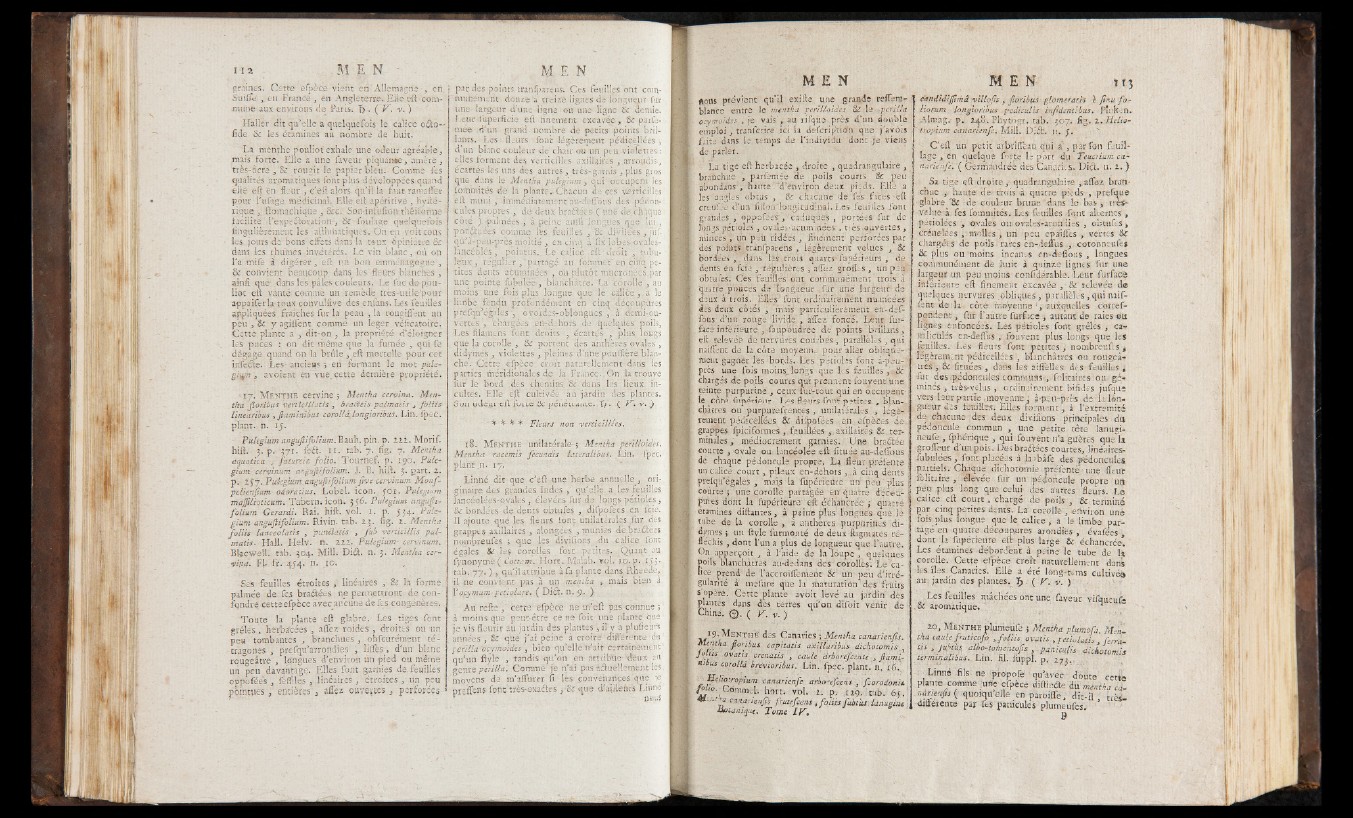 112 MEN
graines. Cette espèce vient en Allemagne, en
Suisse, en France, en Angleterre. Elle est com-
mune aux environs de Paris. ♄. ( V. v. )
Haller dit qu'elle a quelquefois le calice octo-
fide & les étamines au nombre de huit.
La menthe pouliot exhale une odeur agréable,
mais forte. Elle a une saveur piquante, amère,
très-âcre, & rougit le papier bleu. Comme ses
qualités aromatiques sont plus développées quand
elle est en fleur, c'est alors qu'il la faut ramasser
pour l'usage médicinal. Elle est apéritive, hysté-
rique, stomachique, &c. Son infusion théiforme
facilite l'expectoration, & soulage quelquefois
singulièrement les asthmatiques. On en voit tous
les jours de bons effets dans la toux opiniâtre &
dans les rhumes invétérés. Le vin blanc, où on
l'a mise à digérer, est un bon emménagogue,
& convient beaucoup dans les fleurs blanches,
ainsi que dans les pâles couleurs. Le suc de pou-
liot est vanté comme un remède très-utile pour
appaiser la toux convulsive des enfans. Les feuilles
appliquées fraîches sur la peau, la rougissent un
peu, & y agissent comme un léger vésicatoire.
Cette plante a, dit-on, la propriété d'éloigner
les puces : on dit même que la fumée, qui se
dégage quand on la brûle, est mortelle pour cet
insecte. Les anciens, en formant le mot pule-
gium, avoient en vue cette dernière propriété.
17. MENTHE cervine ; Mentha cervina. Men-
tha floribus verticillatis, bracteis palmatis, foliis
linearibus, staminibus corollâ longioribus. Lin. spec.
plant. n. 15.
Pulegium angustifolium. Bauh. pin. p. 222. Moris.
hist. 3. p. 371. sect. 11. tab. 7. fig. 7. Mentha
aquatica, satureiæ folio. Tournef. p. 190. Pule-
gium cervinum angustifolium. J. B. hist. 3. part. 2.
p. 257. Pulegium angustifolium sive cervinum Mons-
peliensium odoratius. Lobel. icon. 501. Pulegium
massiloticum. Tabern. icon. 356. Pulegium angusti-
folium Gerardi. Rai. hist. vol. 1. p. 534. Pule-
gium angustifolium. Rivin. tab. 23. fig. 2. Mentha
foliis lanceolatis, punctatis, sub verticillis pal-
matis. Hall. Helv. n. 222. Pulegium cervinum.
Blacwell. tab. 304. Mill. Dict. n. 3. Mentha cer-
vina. Fl. fr. 454. n. 10.
Ses feuilles étroites, linéaires, & la forme
palmée de ses bractées ne permettront de con-
fondre cette espèce avec aucune de ses congenères.
Toute la plante est glabre. Les tiges sont
grêles, herbacées, assez roides, droites ou un
peu tombantes, branchues, obscurément té-
tragones, presqu'arrondies, lisses, d'un blanc
rougeâtre, longues d'environ un pied ou même
un peu davantage. Elles sont garnies de feuilles
opposées, sessiles, linéaires, étroites, un peu
pointues, entières, assez ouvertes, perforées
MEN
par des points transparens. Ces feuilles ont com-
munément douze à treize lignes de longueur sur
une largeur d'une ligne ou une ligne & demie.
Leur superficie est finement excavée, & parse-
mée d'un grand nombre de petits points bril-
lans. Les fleurs sont légèrement pédicellées,
d'un blanc couleur de chair ou un peu violettes :
elles forment des verticilles axillaires, arrondis,
écartés les uns des autres, très-garnis, plus gros
que dans le Mentha pulegium, qui occupent les
sommités de la plante. Chacun de ces verticilles
est muni, immédiatement au-dessous des pédon-
cules propres, de deux bractées ( une de chaque
côté ), palmées, à peine aussi longues que lui,
ponctuées comme les feuilles, & divisées, jus-
qu'à-peu-près moitié, en cinq à six lobes ovales-
lancéolés, pointus. Le calice est droit, tubu-
leux, resserré, partagé au sommet en cinq pe-
tites dents atténuées, ou plutôt mucronées par
une pointe subulée, blanchâtre. La corolle, au
moins une fois plus longue que le calice, a le
limbe fendu profondément en cinq découpures
presqu'égales, ovoïdes-oblongues, à demi-ou-
vertes, chargées en-dehors de quelques poils,
Les filamens sont droits, écartés, plus longs
que la corolle, & portent des anthères ovales,
didymes, violettes, pleines d'une poussière blan-
che. Cette espèce croît naturellement dans les
parties méridionales de la France. On la trouve
sur le bord des chemins & dans les lieux in-
cultes. Elle est cultivée au jardin des plantes.
Son odeur est forte & pénétrante. ♄. ( V. v. )
* * * * Fleurs non verticillées.
18. MENTHE unilatérale ; Mentha perilloides.
Mentha racemis secundis lateralibus. Lin. spec.
plant. n. 17.
Linné dit que c'est une herbe annuelle, ori-
ginaire des grandes Indes, qu'elle a les feuilles
lancéolées-ovales, élevées sur de longs pétioles,
& bordées de dents obtuses, disposées en scie.
Il ajoute que les fleurs sont unilatérales sur des
grappes axillaires, alongées, munies de bractées
nombreuses ; que les divisions du calice sont
égales & les corolles fort petites. Quant au
synonyme ( Cottam. Hort. Malab. vol. 10. p. 153.
tab. 77. ), qu'il attribue à sa plante dans Rheeder,
il ne convient pas à un mentha, mais bien à
l'ocymum petiolare. ( Dict. n. 9. )
Au reste, cette espèce ne m'est pas connue ;
à moins que peut-être ce ne soit une plante que
je vis fleurir au jardin des plantes, il y a plusieurs
années, & que j'ai peine à croire différente du
perilla ocymoides, bien qu'elle n'ait certainement
qu'un style, tandis qu'on en attribue deux au
genre perilla. Comme je n'ai pas actuellement les
moyens de m'assurer si les convenances que je
pressens sont très-exactes, & que d'ailleurs Linné
nous
MEN
nous prévient qu'il existe une grande ressem-
blance entre le mentha perilloides & le perilla
ocymoides, je vais, au risque près d'un double
emploi, transcrire ici la description que j'avois
faite dans le temps de l'individu dont je viens
de parler.
La tige est herbacée, droite, quadrangulaire,
branchue, parsemée de poils courts & peu
abondans, haute d'environ deux pieds. Elle a
les angles obtus, & chacune de ses faces est
creusée d'un sillon longitudinal. Les feuilles sont
grandes, opposées, caduques, portées sur de
longs pétioles, ovales-acuminées, très-ouvertes,
minces, un peu ridées, finement perforées par
des points transparens, légèrement velues, &
bordées, dans les trois quarts supérieurs, de
dents en scie, régulières, assez grosses, un peu
obtuses. Ces feuilles ont communément trois à
quatre pouces de longueur sur une largeur de
deux à trois. Elles sont ordinairement nuancées
des deux côtés, mais particulièrement en-des-
sous d'un rouge livide, assez foncé. Leur sur-
face inférieure, saupoudrée de points brillans,
est relevée de nervures courbes, parallèles, qui
naissent de la côte moyenne pour aller oblique-
ment gagner les bords. Les pétioles sont à-peu-
près une fois moins longs que les feuilles, &
chargés de poils courts qui prennent souvent une
teinte purpurine, ceux sur-tout qui en occupent
le côté supérieur. Les fleurs sont petites, blan-
châtres ou purpurescentes, unilatérales, légè-
rement pédicellées & disposées en espèces de
grappes spiciformes, feuillées, axillaires & ter-
minales, médiocrement garnies. Une bractée
courte, ovale ou lancéolée est située au-dessous
de chaque pédoncule propre. La fleur présente
un calice court, pileux en-dehors, à cinq dents
presqu'égales, mais la supérieure un peu plus
courte ; une corolle partagée en quatre décou-
pures dont la supérieure est échancrée ; quatre
étamines distantes, à peine plus longues que le
tube de la corolle, à anthères purpurines di-
dymes ; un style surmonté de deux stigmates ré-
fléchis, dont l'un a plus de longueur que l'autre.
On apperçoit, à l'aide de la loupe, quelques
poils blanchâtres au-dedans des corolles. Le ca-
lice prend de l'accroissement & un peu d'irré-
gularité à mesure que la maturation des fruits
s'opère. Cette plante avoit levé au jardin des
plantes dans des terres qu'on disoit venir de
Chine. ☉. ( V. v. )
19. MENTHE des Canaries ; Mentha canariensis.
Mentha floribus capitatis axillaribus dichotomis,
foliis ovatis crenatis, caule arborescente, stami-
nibus corollâ brevioribus. Lin. spec. plant. n. 16.
Heliotropium canariense arborescens, scorodoniæ
folio. Commel. hort. vol. 2. p. 129. tab. 65.
Mentha canariensis frutescens, foliis subtus lanugine
Botanique. Tome IV.
MEN 113
candidissimâ villosis, floribus glomeratis è sinu fo-
liorum longioribus pediculis insidentibus. Pluken.
Almag. p. 248. Phytogr. tab. 307. fig. 2. Helio-
tropium canariense. Mill. Dict. n. 3.
C'est un petit arbrisseau qui a, par son feuil-
lage, en quelque sorte le port du Teucrium ca-
nariense. ( Germandrée des Canaries. Dict. n. 2. )
Sa tige est droite, quadrangulaire, assez bran-
chue, haute de trois à quatre pieds, presque
glabre & de couleur brune dans le bas, très-
velue à ses sommités. Les feuilles sont alternes,
pétiolées, ovales ou ovales-arrondies, obtuses,
crénelées, molles, un peu épaisses, vertes &
chargées de poils rares en-dessus, cotonneuses
& plus ou moins incanes en-dessous, longues
communément de huit à quinze lignes sur une
largeur un peu moins considérable. Leur surface
inférieure est finement excavée, & relevée de
quelques nervures obliques, parallèles, qui nais-
sent de la côte moyenne, auxquelles corres-
pondent, sur l'autre surface, autant de raies ou
lignes enfoncées. Les pétioles sont grêles, ca-
naliculés en-dessus, souvent plus longs que les
feuilles. Les fleurs sont petites, nombreuses,
légèrement pédicellées, blanchâtres ou rougeâ-
tres, & situées, dans les aisselles des feuilles,
sur des pédoncules communs, solitaires ou gé-
minés, très-velus, ordinairement bifides jusque
vers leur partie moyenne, à-peu-près de la lon-
gueur des feuilles. Elles forment, à l'extrémité
de chacune des deux divisions principales du
pédoncule commun, une petite tête lanugi-
neuse, sphérique, qui souvent n'a guères que la
grosseur d'un pois. Des bractées courtes, linéaires-
subulées, sont placées à la base des pédoncules
partiels. Chaque dichotomie présente une fleur
solitaire, élevée sur un pédoncule propre un
peu plus long que celui des autres fleurs. Le
calice est court, chargé de poils, & terminé
par cinq petites dents. La corolle, environ une
fois plus longue que le calice, a le limbe par-
tagé en quatre découpures arrondies, évasées,
dont la supérieure est plus large & échancrée.
Les étamines débordent à peine le tube de la
corolle. Cette espèce croît naturellement dans
les îles Canaries. Elle a été long-tems cultivée
au jardin des plantes. ♄ ( V. v. )
Les feuilles mâchées ont une saveur visqueuse
& aromatique.
20. MENTHE plumeuse ; Mentha plumosa. Men-
tha caule fruticoso, foliis ovatis, petiolatis, serra-
tis, subtùs albo-tomentosis, paniculis dichotomis
terminalibus. Lin. fil. suppl. p. 273.
Linné fils ne propose qu'avec doute cette
plante comme une espèce distincte du mentha ca-
nariensis ( quoiqu'elle en paroisse, dit-il, très-
différente par ses panicules plumeuses.
P